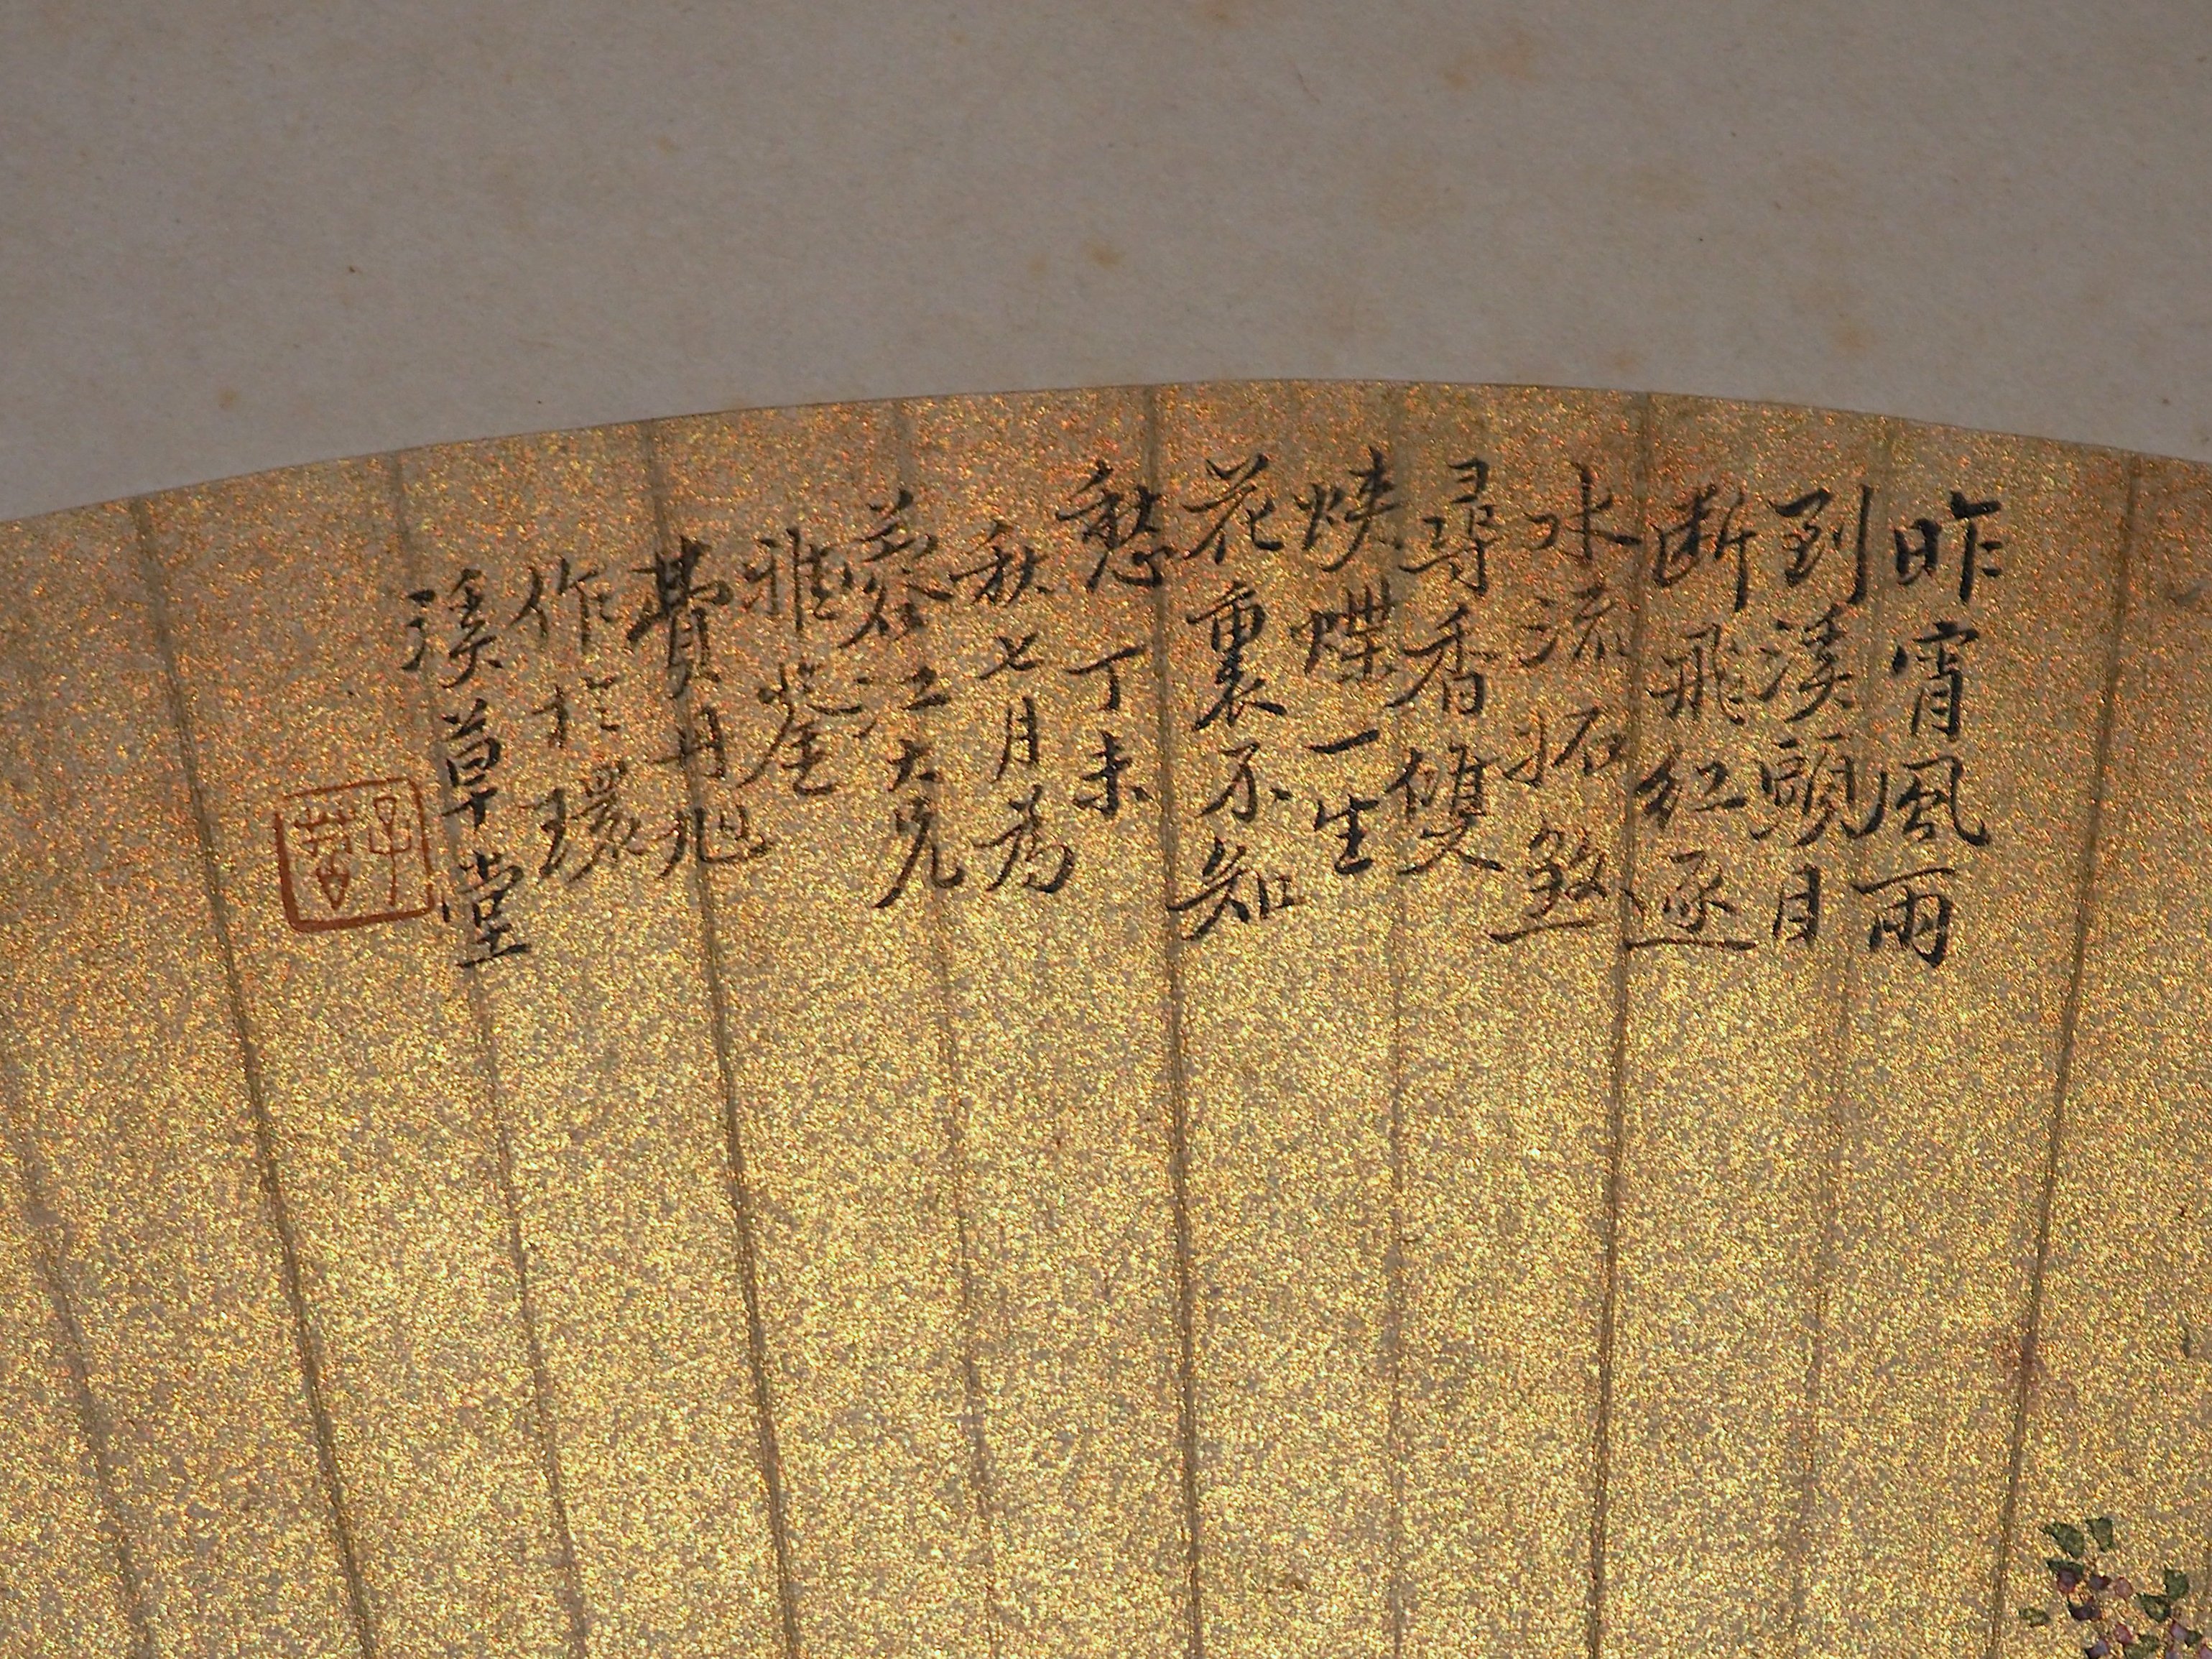 昨宵風雨
到溪頭目
断飛紅逐
水流拓㷀
尋香雙
蛺蝶一生
花裏不知
愁 丁未
秋七月為
蓉江大兄
雅鑒
費丹旭
作於環
溪草堂
子苕